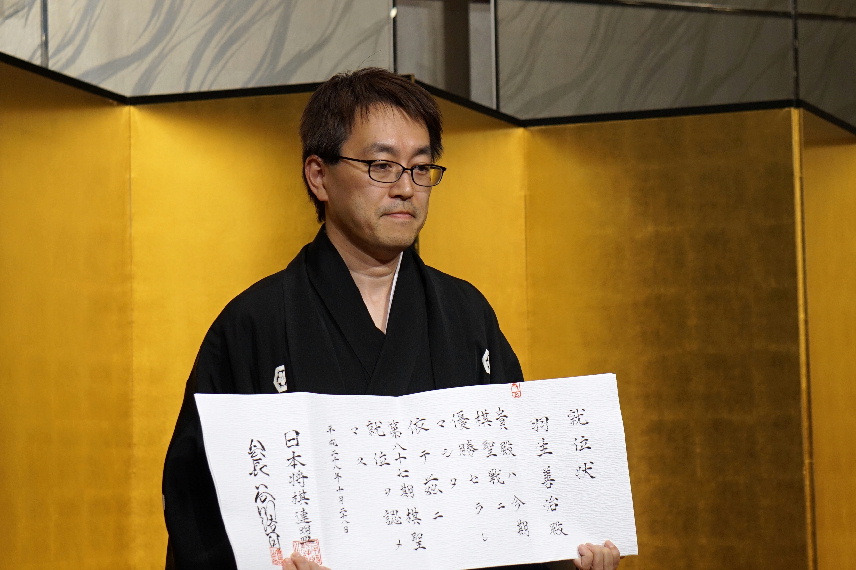 就位状
羽生善治殿
貴殿ハ今期
棋聖戦ニ
優勝セラレ
マシタ
依テ茲ニ
第八十七期棋聖
就位ヲ認メ
マス
平成二十八年十月二十八日
日本将棋連盟
会長